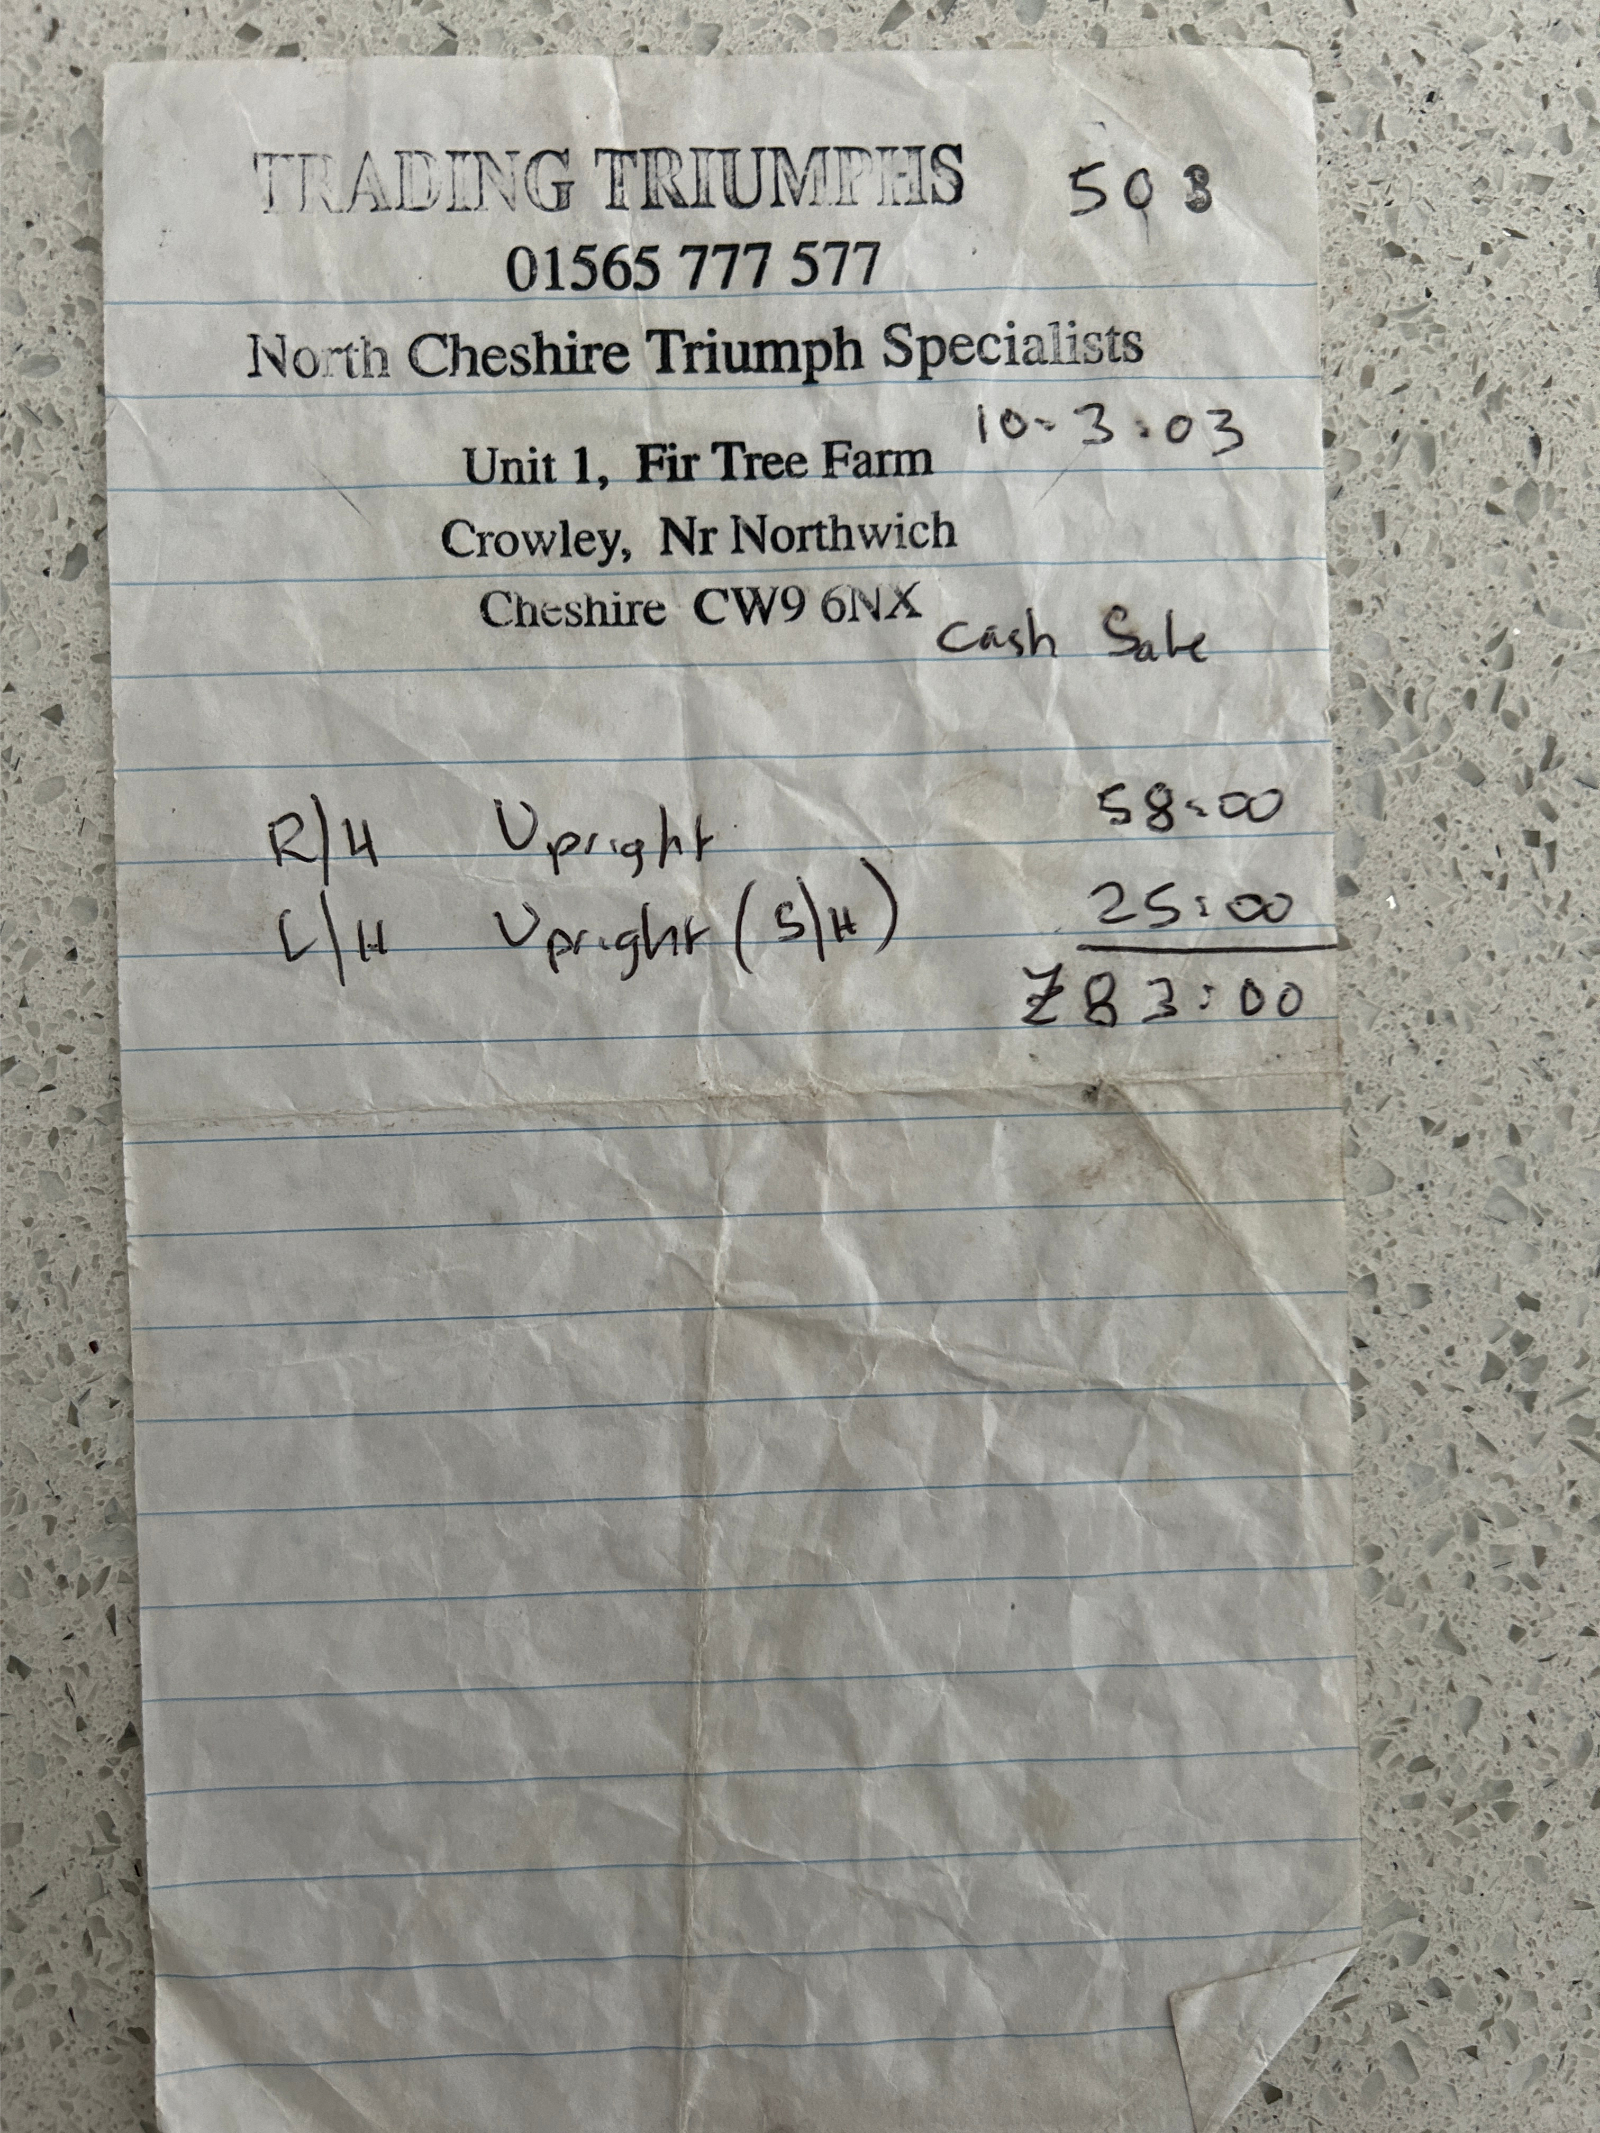 TRADING TRIUMPHS 503
01565 777 577
North Cheshire Triumph Specialists
10-3:03
Unit 1, Fir Tree Farm
Crowley, Nr Northwich
Cheshire CW9 6NX
Cash Sale
R/H Upright 58:00
L/H Upright (S/H) 25:00
£83:00